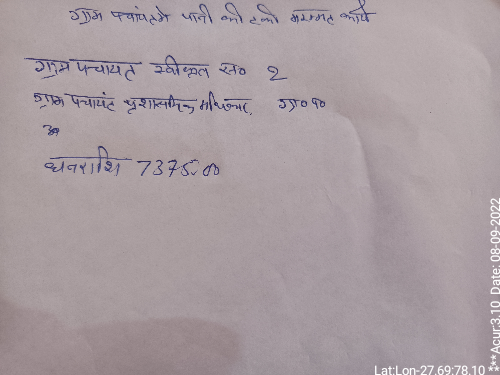 ग्राम पंचायतमे पानी की टंकी मरम्मत कार्य
ग्राम पंचायत स्वीकृत सं० 2
ग्राम पंचायत प्रशासनिक ग्रा० पं०
धनराशि 7375.00
Lat:Lon-27.69:78.10
***Acur:3.10 Date: 08-09-2022